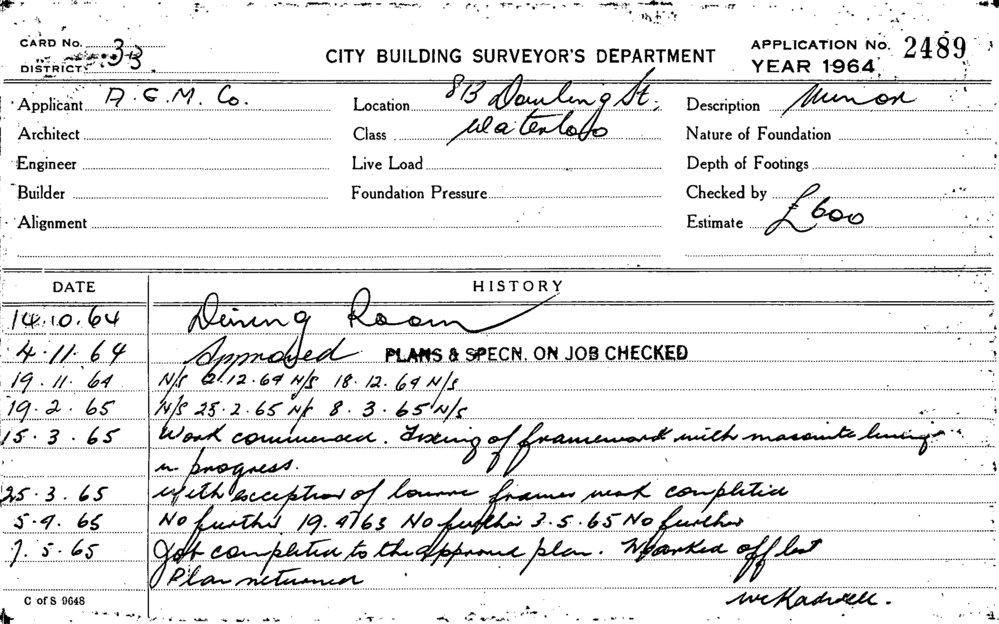 CARD No. 33
DISTRICT:
CITY BUILDING SURVEYOR'S DEPARTMENT
APPLICATION No. 2489
YEAR 1964
Applicant A.G.M. Co. Location 8B Dowling St. Description Minor
Architect Class Waterloo Nature of Foundation
Engineer Live Load Depth of Footings
Builder Foundation Pressure Checked by
Alignment Estimate £600
DATE HISTORY
14.10.64 Dining Room
4.11.64 Approved PLANS & SPECN. ON JOB CHECKED
19.11.64 N/S 2.12.64 N/S 18.12.64 N/S
19.2.65 N/S 25.2.65 N/S 8.3.65 N/S
15.3.65 Work commenced. Fixing of framework with masonite lining
in progress.
25.3.65 With exception of louvre frames work completed
5.4.65 No further 19.4.65 No further 3.5.65 No further
7.5.65 Job completed to the approved plan. Marked off list
Plan returned
C of S 9648